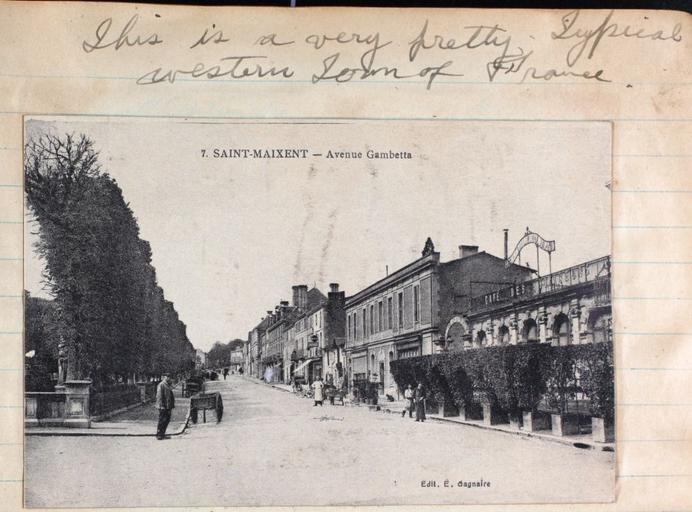 This is a very pretty. Typical
western Town of France.
7. SAINT-MAIXENT — Avenue Gambetta
CAFE DES
Edit. E. Gagnaire